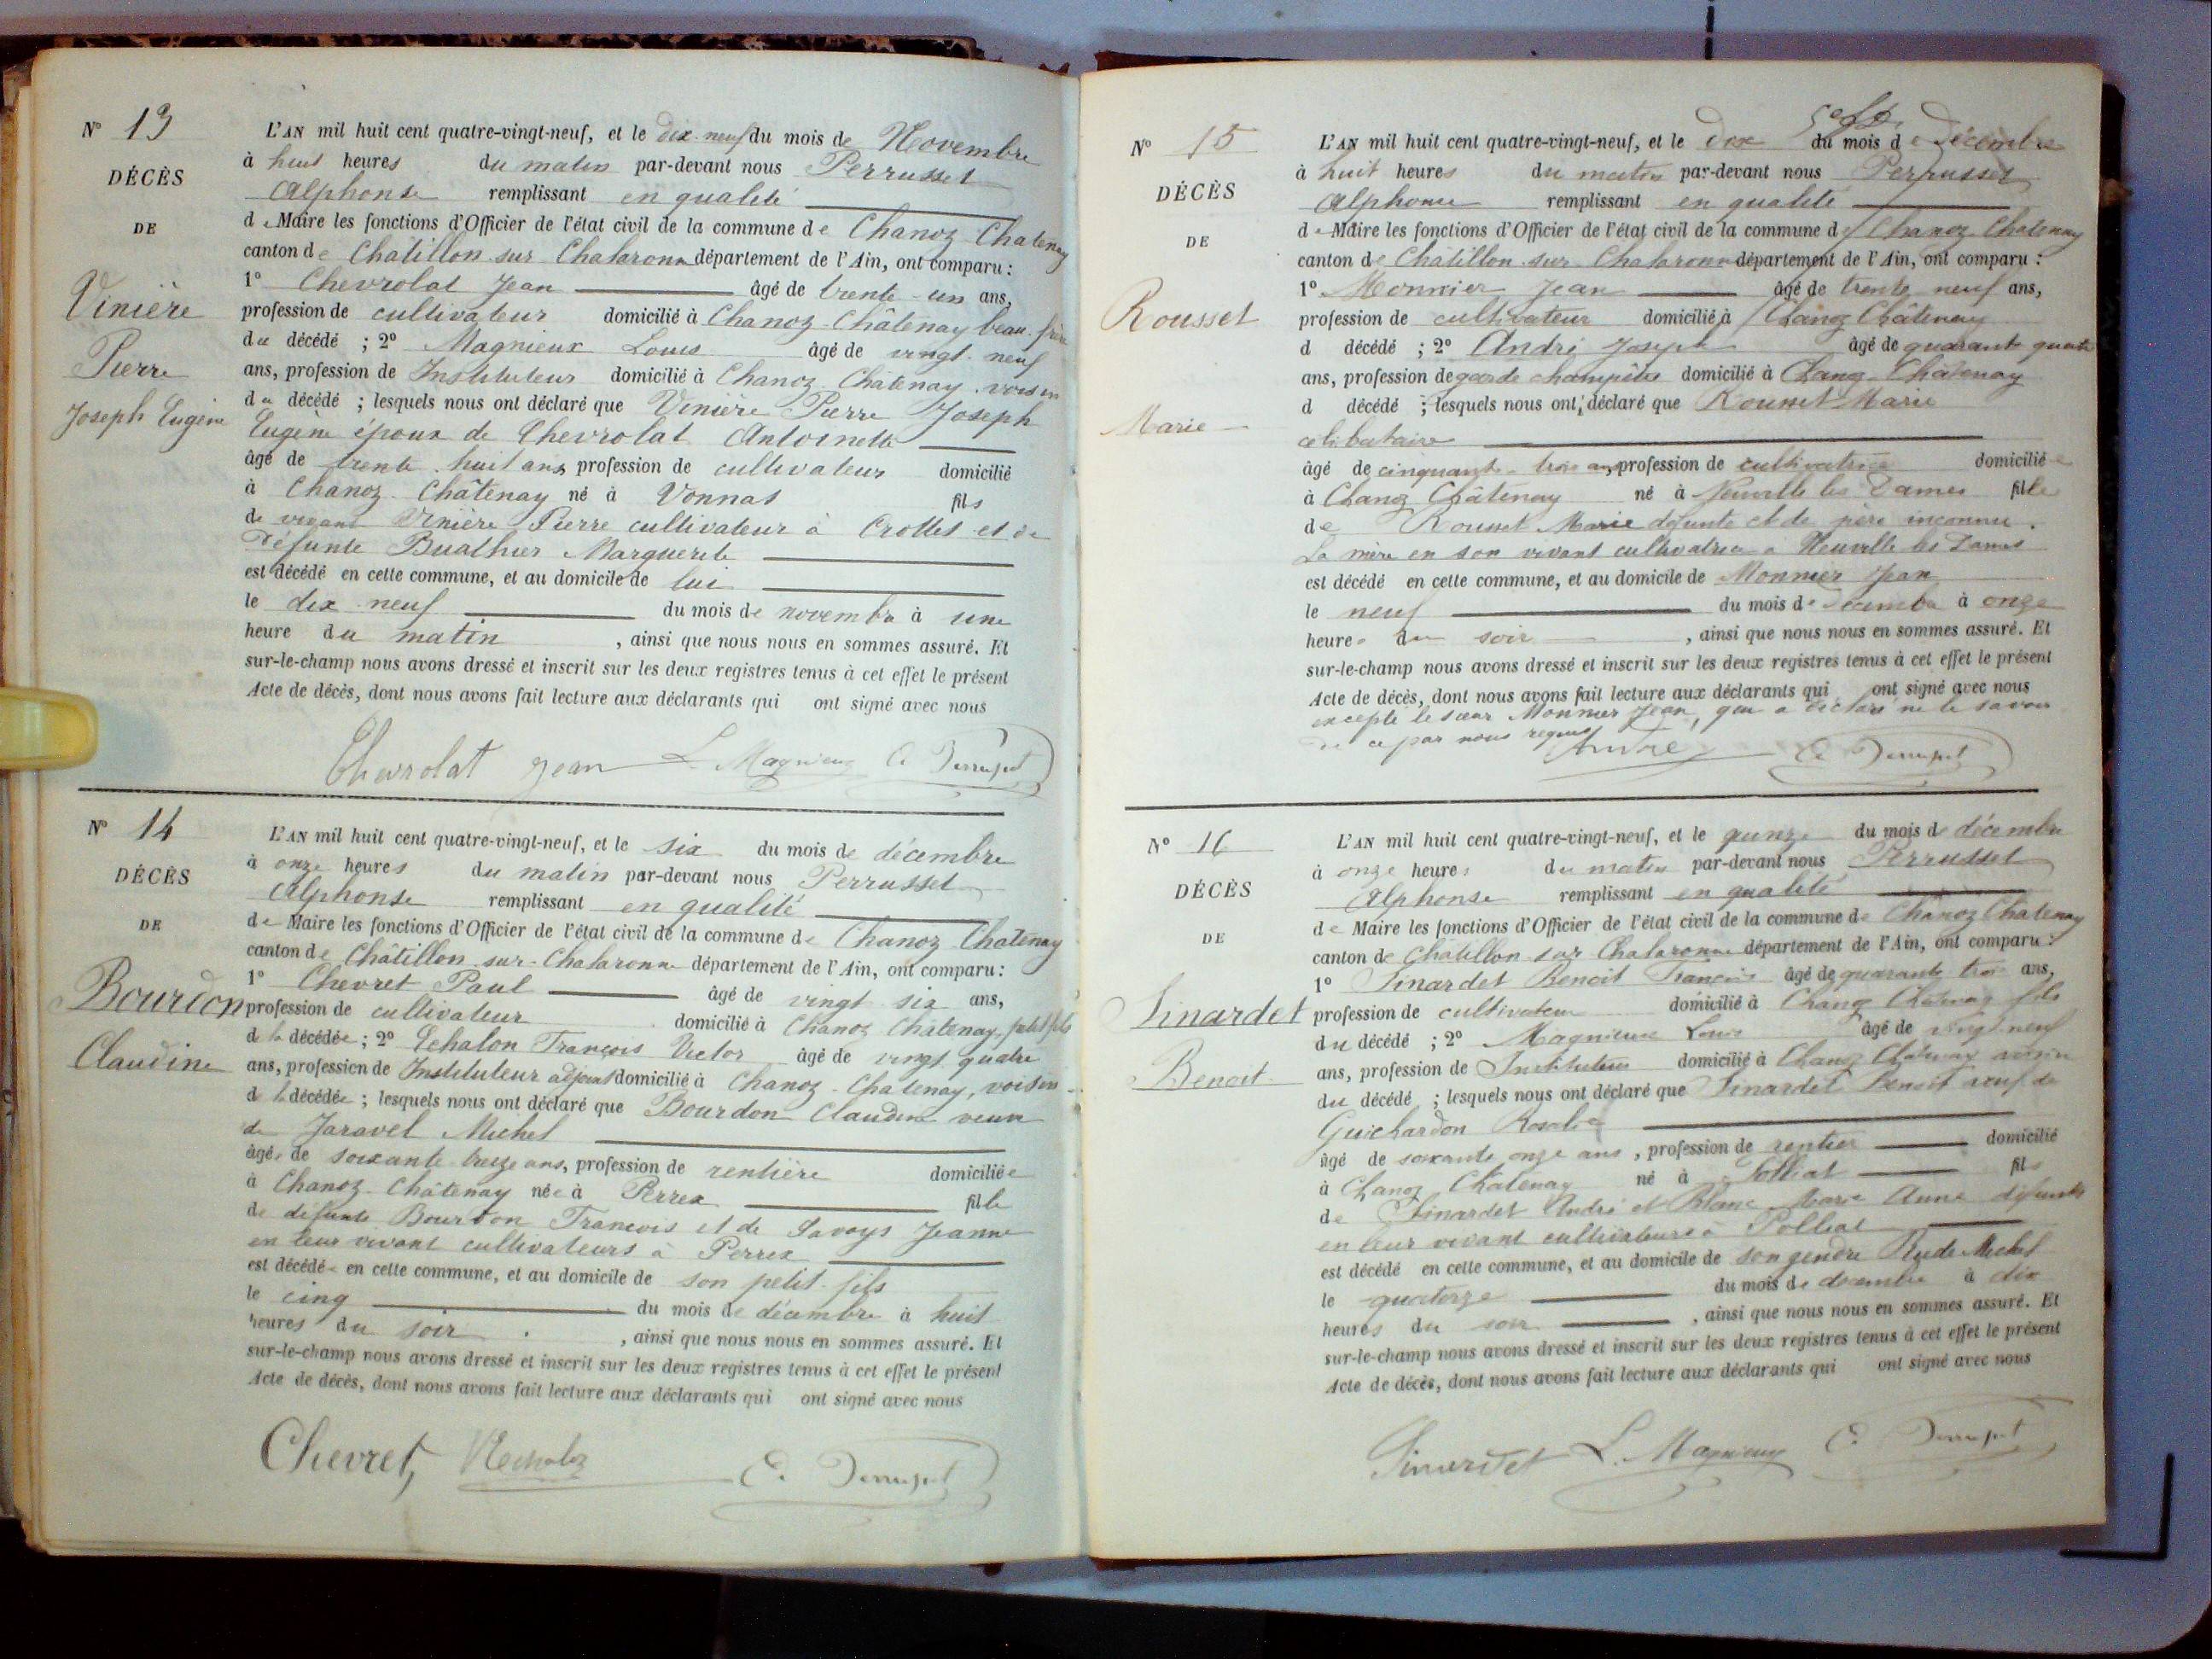 N° 13
DÉCÈS
DE
Vinière
Pierre
Joseph Eugène
L'AN mil huit cent quatre-vingt-neuf, et le dix-neuf du mois de Novembre
à huit heures du matin par-devant nous Perrusset
Alphonse remplissant en qualité
de Maire les fonctions d'Officier de l'état civil de la commune de Chanoz-Chatenay
canton de Chatillon sur Chalaronne département de l'Ain, ont comparu :
1° Chevrolat Jean âgé de trente-un ans,
profession de cultivateur domicilié à Chanoz-Châtenay beau-frère
du décédé ; 2° Magnieux Louis âgé de vingt-neuf
ans, profession de Instituteur domicilié à Chanoz-Châtenay, voisin
du décédé ; lesquels nous ont déclaré que Vinière Pierre Joseph
Eugène époux de Chevrolat Antoinette
âgé de trente-huit ans, profession de cultivateur domicilié
à Chanoz-Châtenay né à Vonnas fils
de vivant Vinière Pierre cultivateur à Crottet et de
défunte Buathier Marguerite
est décédé en cette commune, et au domicile de lui
le dix-neuf du mois de novembre à une
heure du matin, ainsi que nous nous en sommes assuré. Et
sur-le-champ nous avons dressé et inscrit sur les deux registres tenus à cet effet le présent
Acte de décès, dont nous avons fait lecture aux déclarants qui ont signé avec nous
Chevrolat Jean L. Magnieux A. Perrusset
N° 14
DÉCÈS
DE
Bourdon
Claudine
L'AN mil huit cent quatre-vingt-neuf, et le six du mois de décembre
à onze heures du matin par-devant nous Perrusset
Alphonse remplissant en qualité
de Maire les fonctions d'Officier de l'état civil de la commune de Chanoz-Chatenay
canton de Châtillon-sur-Chalaronne département de l'Ain, ont comparu :
1° Chevret Paul âgé de vingt six ans,
profession de cultivateur domicilié à Chanoz Chatenay, petit fils
de la décédée ; 2° Echalon François Victor âgé de vingt quatre
ans, profession de Instituteur adjoint domicilié à Chanoz-Chatenay, voisin
de la décédée ; lesquels nous ont déclaré que Bourdon Claudine veuve
de Jaravel Michel
âgée de soixante treize ans, profession de rentière domiciliée
à Chanoz-Châtenay née à Perrex fille
de défunts Bourdon François et de Savoys Jeanne
en leur vivant cultivateurs à Perrex
est décédée en cette commune, et au domicile de son petit-fils
le cinq du mois de décembre à huit
heures du soir, ainsi que nous nous en sommes assuré. Et
sur-le-champ nous avons dressé et inscrit sur les deux registres tenus à cet effet le présent
Acte de décès, dont nous avons fait lecture aux déclarants qui ont signé avec nous
Chevret A. Perrusset
N° 15
DÉCÈS
DE
Rousset
Marie
L'AN mil huit cent quatre-vingt-neuf, et le dix du mois de décembre
à huit heures du matin par-devant nous Perrusset
Alphonse remplissant en qualité
de Maire les fonctions d'Officier de l'état civil de la commune de Chanoz-Chatenay
canton de Châtillon-sur-Chalaronne département de l'Ain, ont comparu :
1° Monnier Jean âgé de trente neuf ans,
profession de cultivateur domicilié à Chanoz Châtenay
d décédé ; 2° André Joseph âgé de quarante quatre
ans, profession de garde champêtre domicilié à Chanoz-Châtenay
d décédé ; lesquels nous ont déclaré que Rousset Marie
célibataire
âgé de cinquante-trois ans, profession de cultivatrice domiciliée
à Chanoz Châtenay né à Neuville les Dames fille
de Rousset Marie défunte et de père inconnu.
La mère en son vivant cultivatrice à Neuville les Dames
est décédé en cette commune, et au domicile de Monnier Jean
le neuf du mois de décembre à onze
heures du soir, ainsi que nous nous en sommes assuré. Et
sur-le-champ nous avons dressé et inscrit sur les deux registres tenus à cet effet le présent
Acte de décès, dont nous avons fait lecture aux déclarants qui ont signé avec nous
excepté le sieur Monnier Jean, qui a déclaré ne le savoir
de ce par nous requis André A. Perrusset
N° 16
DÉCÈS
DE
Sinardet
Benoit
L'AN mil huit cent quatre-vingt-neuf, et le quinze du mois de décembre
à onze heures du matin par-devant nous Perrusset
Alphonse remplissant en qualité
de Maire les fonctions d'Officier de l'état civil de la commune de Chanoz Chatenay
canton de Châtillon-sur-Chalaronne département de l'Ain, ont comparu :
1° Sinardet Benoit François âgé de quarante trois ans,
profession de cultivateur domicilié à Chanoz Châtenay fils
du décédé ; 2° Magnieux Louis âgé de vingt-neuf
ans, profession de Instituteur domicilié à Chanoz Châtenay voisin
du décédé ; lesquels nous ont déclaré que Sinardet Benoit veuf de
Guichardon Rosalie
âgé de soixante onze ans, profession de rentier domicilié
à Chanoz Chatenay né à Polliat fils
de Sinardet André et Blanc Marie Anne défunts
en leur vivant cultivateurs à Polliat
est décédé en cette commune, et au domicile de son gendre Rude Michel
le quatorze du mois de décembre à dix
heures du soir, ainsi que nous nous en sommes assuré. Et
sur-le-champ nous avons dressé et inscrit sur les deux registres tenus à cet effet le présent
Acte de décès, dont nous avons fait lecture aux déclarants qui ont signé avec nous
Sinardet L. Magnieux A. Perrusset